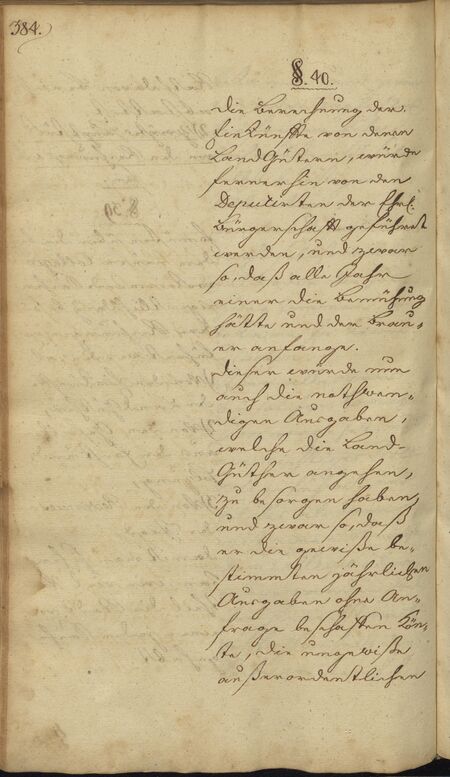 384.
§. 40.
Die Berechnung der
Einkünffte von denen
Land Gütern, würde
fernerhin von den
Deputirten der Ehrl.
Bürgerschafft geführet
werden, und zwar
so, daß alle Jahr
einer die Bemühung
hätte und der Brau-
er anfange.
Dieser würde nun
auch die nothwen-
digen Ausgaben,
welche die Land-
Güther angehen,
zu besorgen haben,
und zwar so, daß
er die gewiße be-
stimmten jährlichen
Ausgaben ohne An-
frage beschaffen kön-
te, die ungewiße
außerordentlichen